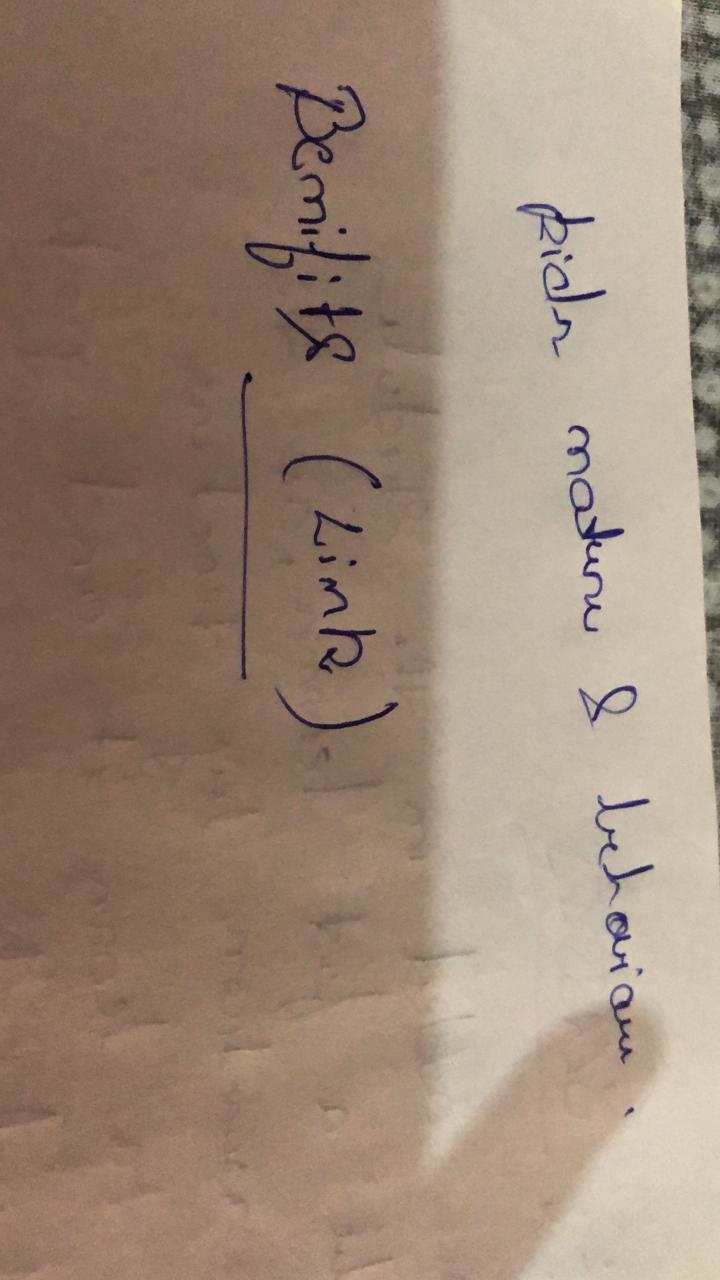 kids nature & behaviour.
Benifits (Link)